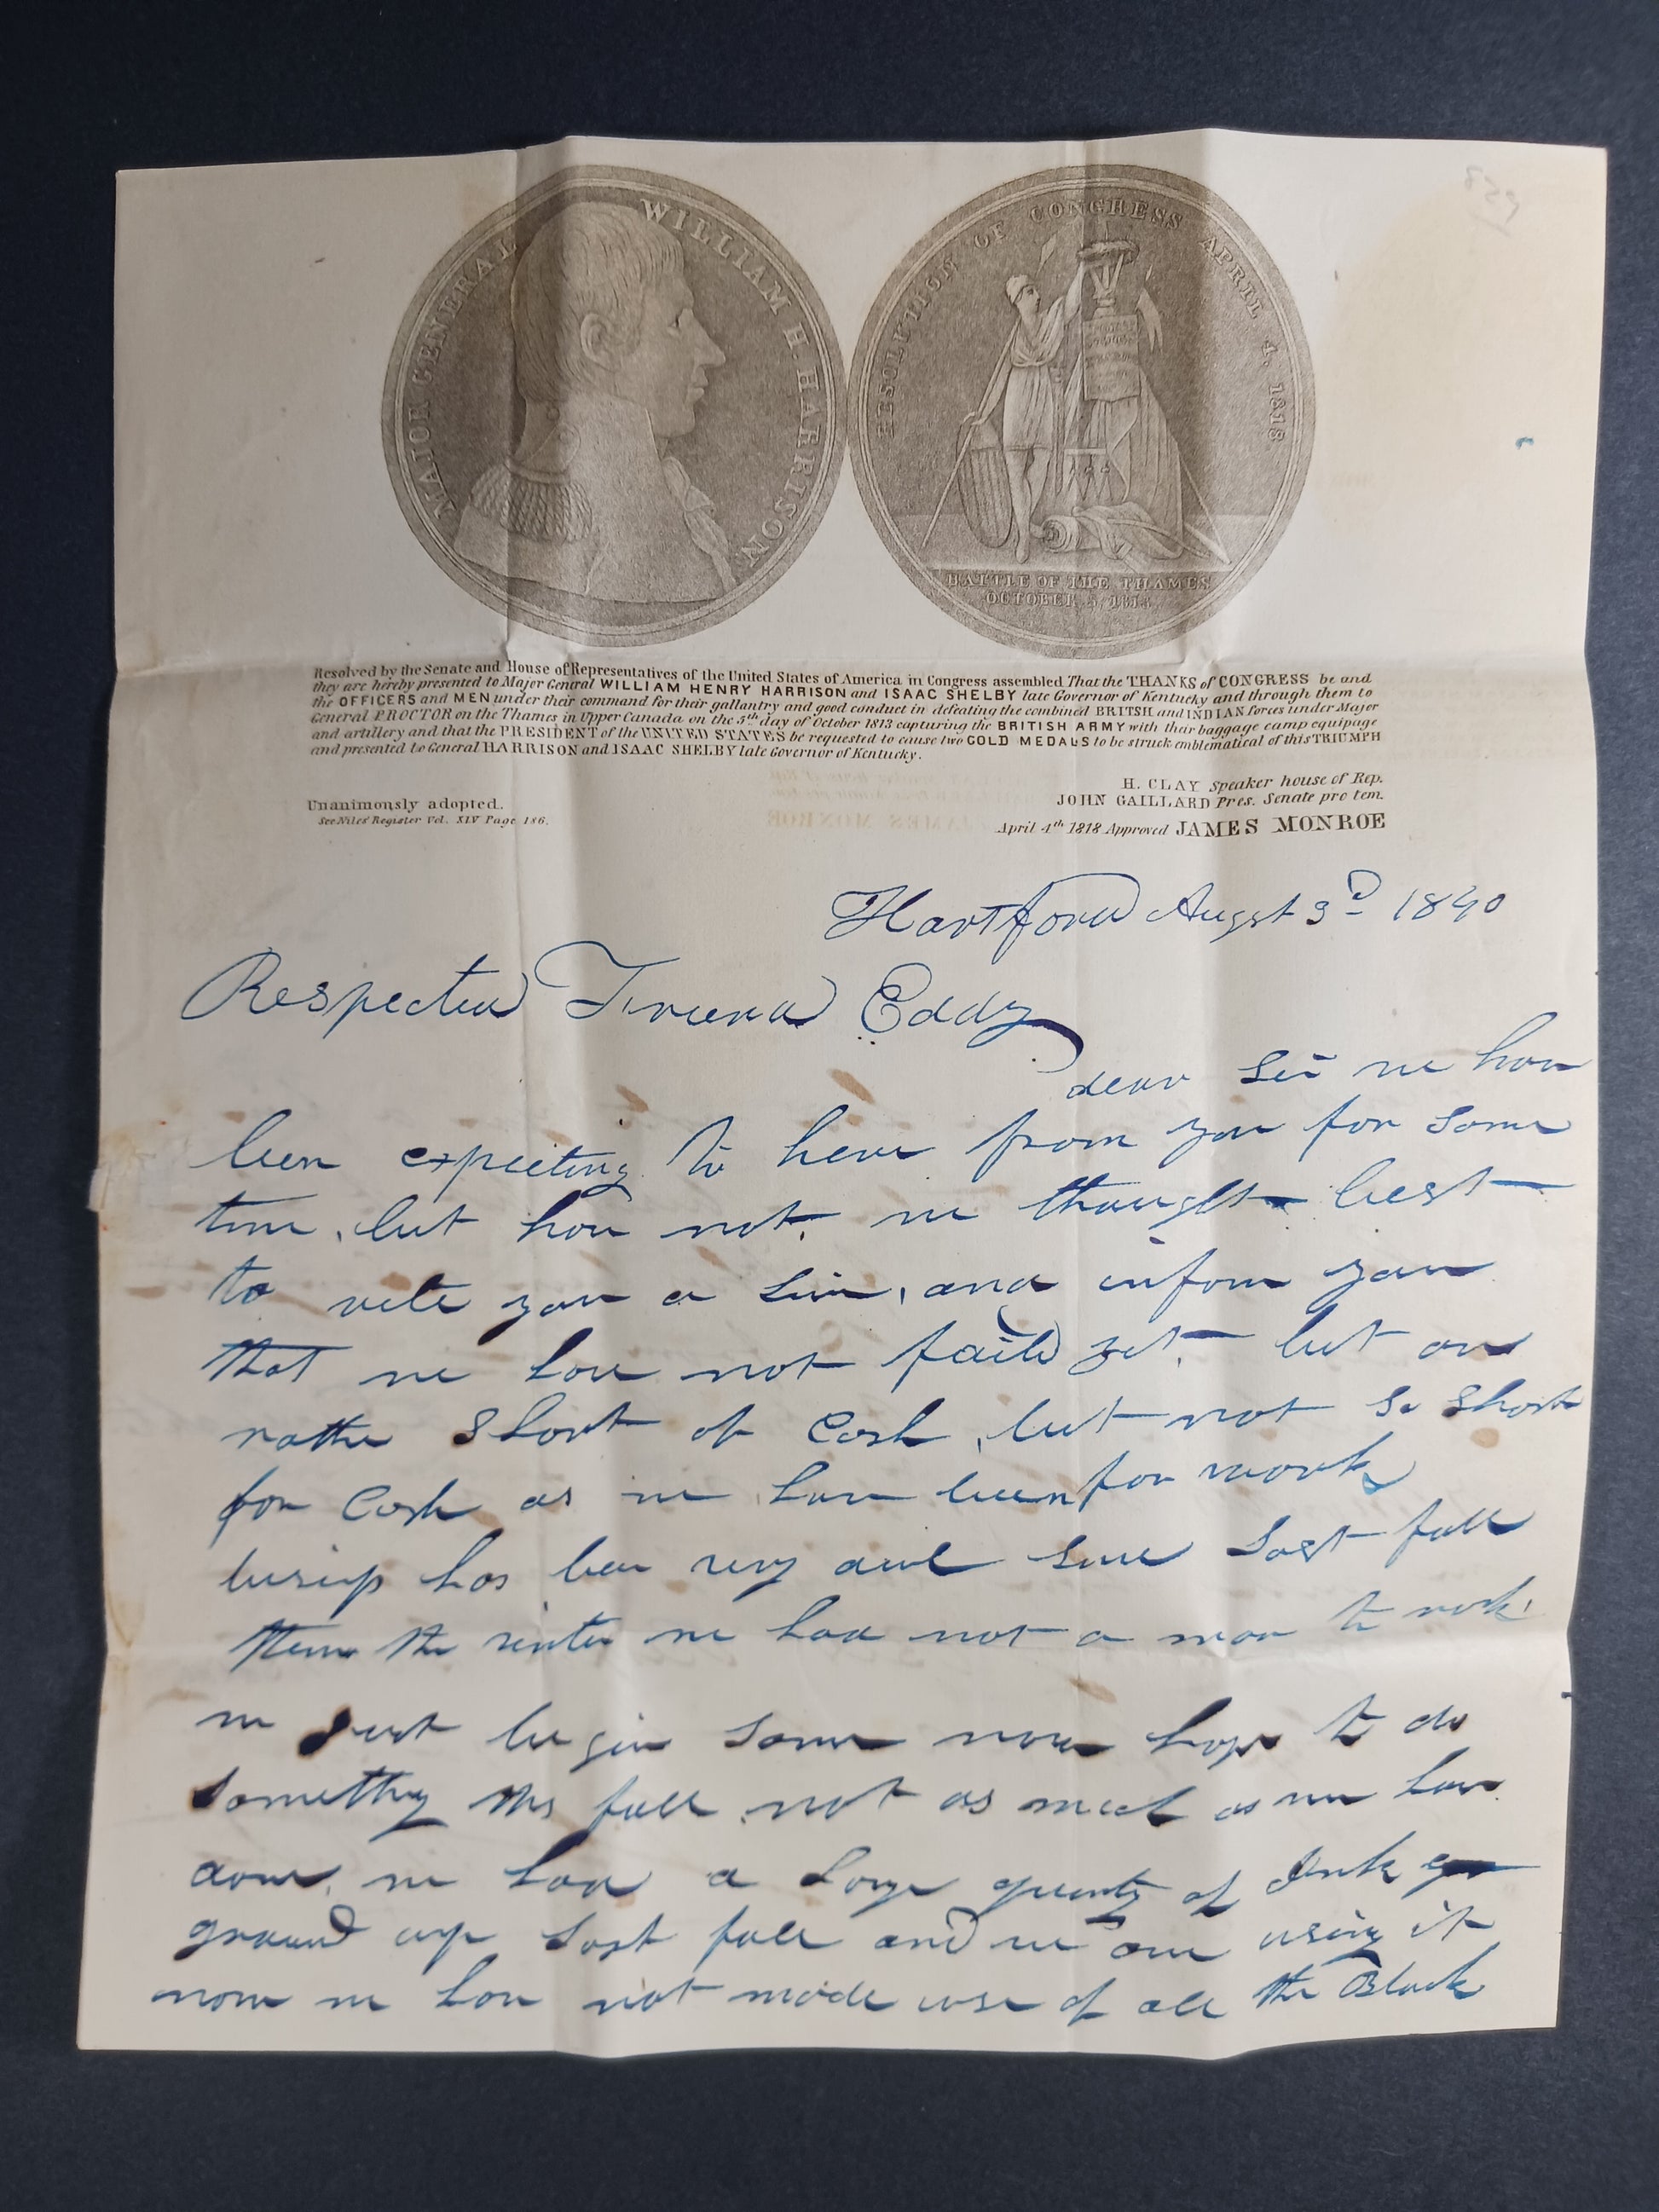 MAJOR GENERAL WILLIAM H. HARRISON
RESOLUTION OF CONGRESS APRIL 4. 1818.
BATTLE OF THE THAMES
OCTOBER 5. 1813.
Resolved by the Senate and House of Representatives of the United States of America in Congress assembled That the THANKS of CONGRESS be and
they are hereby presented to Major General WILLIAM HENRY HARRISON and ISAAC SHELBY late Governor of Kentucky and through them to
the OFFICERS and MEN under their command for their gallantry and good conduct in defeating the combined BRITSH and INDIAN forces under Major
General PROCTOR on the Thames in Upper Canada on the 5th day of October 1813 capturing the BRITISH ARMY with their baggage camp equipage
and artillery and that the PRESIDENT of the UNITED STATES be requested to cause two GOLD MEDALS to be struck emblematical of this TRIUMPH
and presented to General HARRISON and ISAAC SHELBY late Governor of Kentucky.
H. CLAY Speaker house of Rep.
JOHN GAILLARD Pres. Senate pro tem.
Unanimously adopted.
See Niles' Register Vol. XIV Page 186.
April 4th 1818 Approved JAMES MONROE
Hartford Augst 3D 1840
Respected Friend Eddy
dear Sir we have
been expecting to hear from you for some
time, but have not, we thought best
to write you a line, and inform you
that we have not faild yet, but are
rather short of Cash, but not so short
for Cash as we have been for work
busness has been very dull since last fall
then the winter we had not a man to work,
we just begin some now hope to do
something this fall, not as much as we have
done, we had a large quanty of Ink
ground up last fall and we are using it
now we have not made use of all the Black